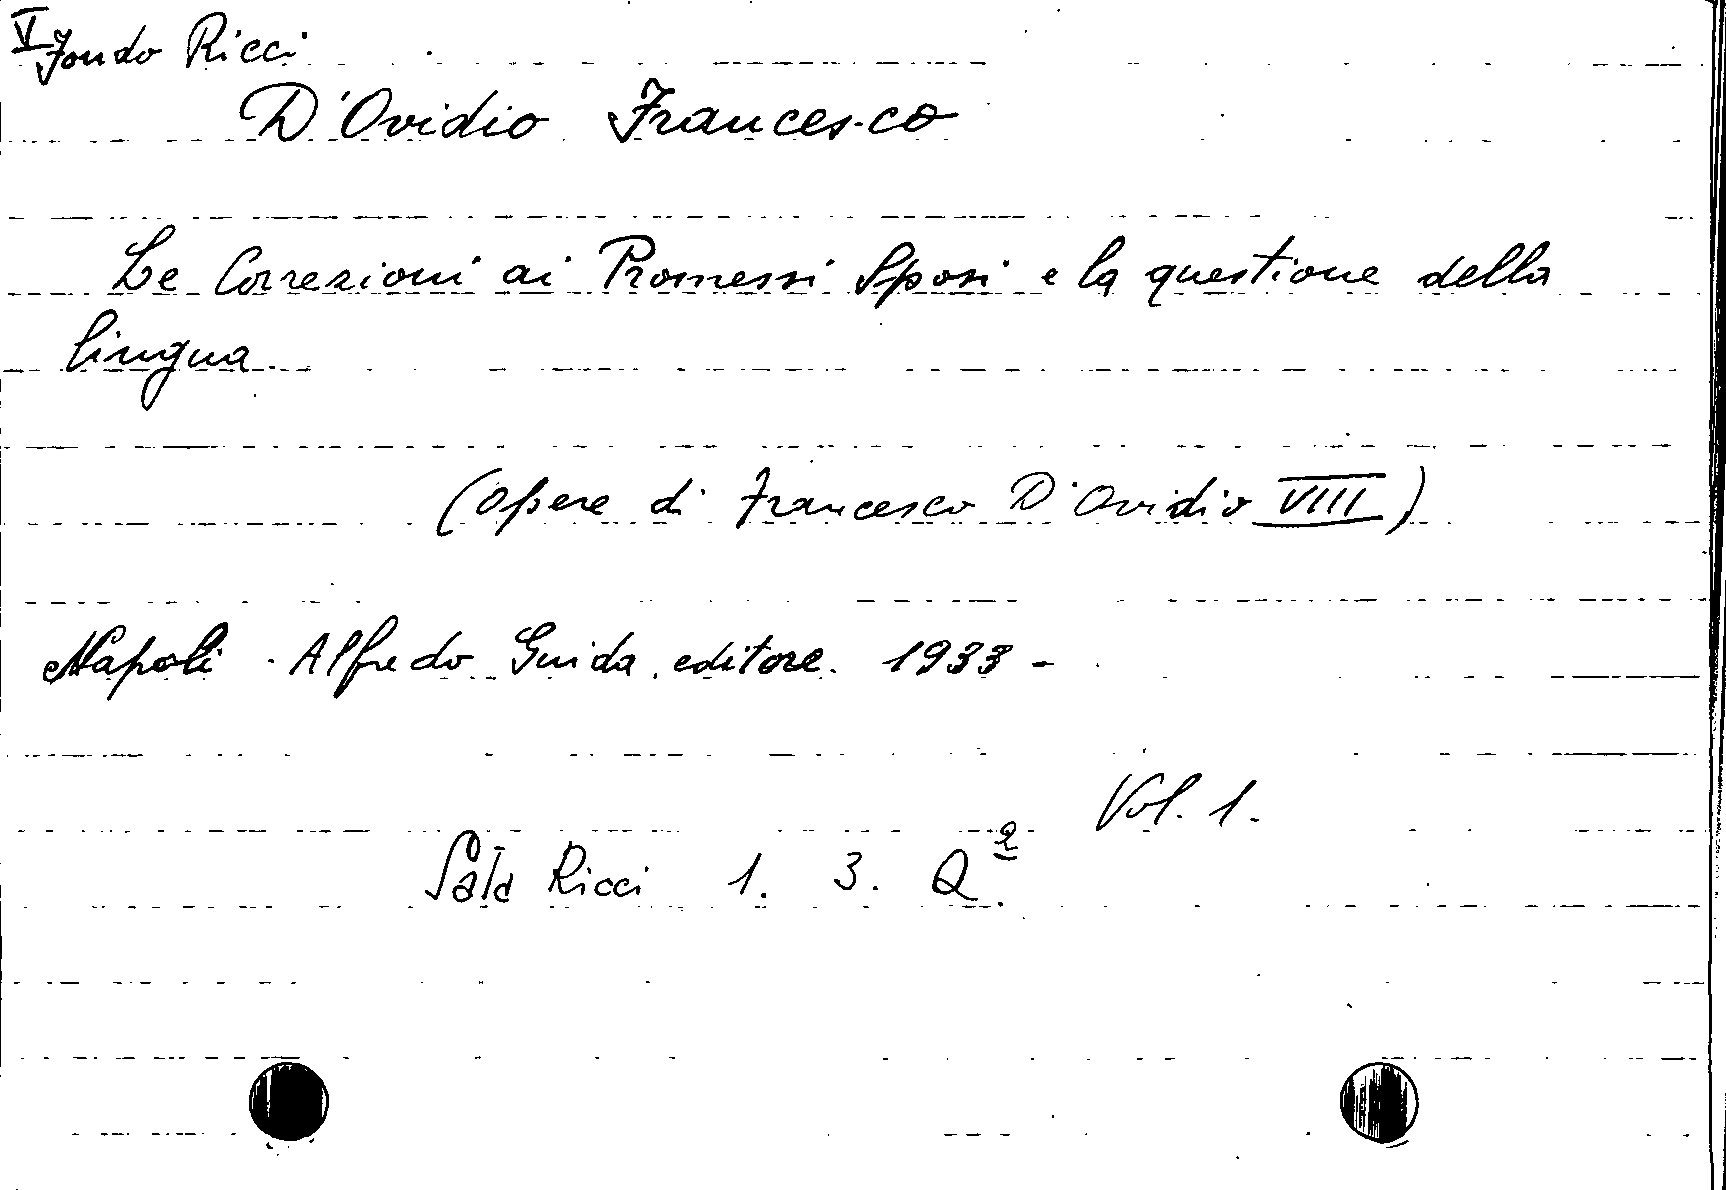 V Fondo Ricci
D'Ovidio Francesco
Le Correzioni ai Promessi Sposi e la questione della
lingua.
(Opere di Francesco D'Ovidio VIII)
Napoli - Alfredo Guida, editore. 1933 -
Vol. 1.
Sala Ricci 1. 3. Q²